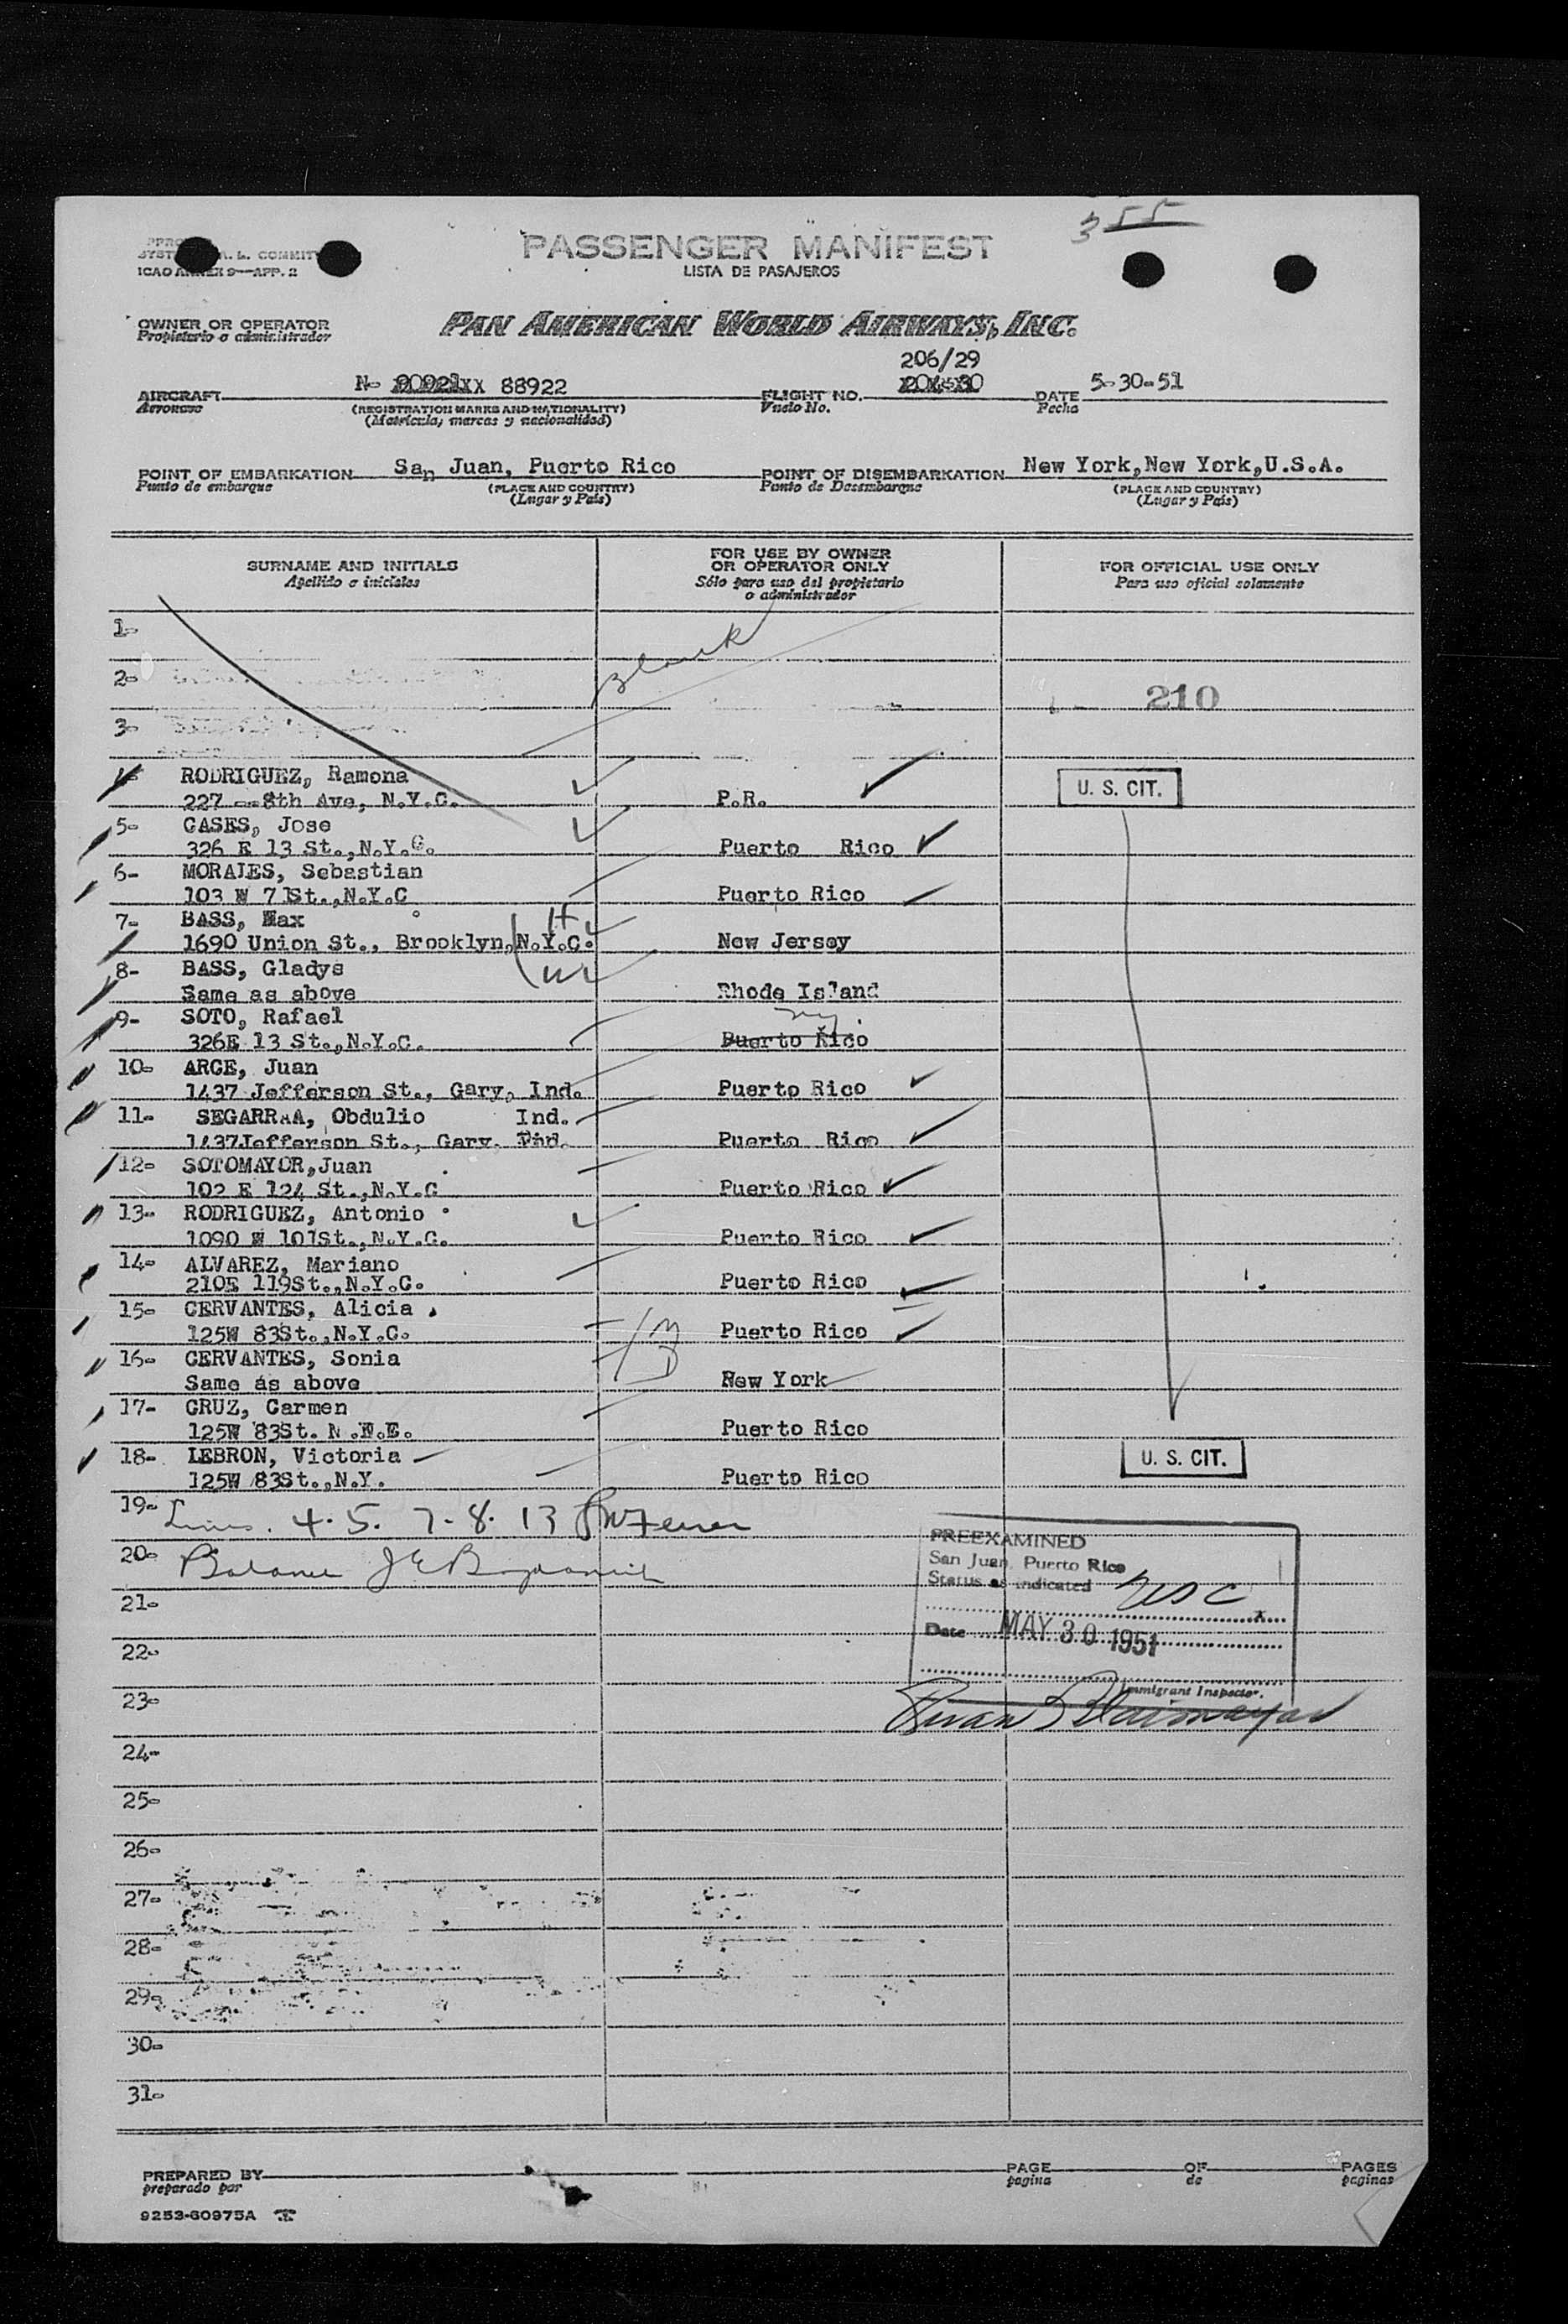 355
PASSENGER MANIFEST
LISTA DE PASAJEROS
A. L. COMMIT
ICAO ANNEX 9—APP. 2
OWNER OR OPERATOR
Propietario o administrador
PAN AMERICAN WORLD AIRWAYS, INC.
206/29
AIRCRAFT N- 90921xx 88922 FLIGHT NO. DATE 5-30-51
Aeronave (REGISTRATION MARKS AND NATIONALITY) Vuelo No. Fecha
(Matrícula, marcas y nacionalidad)
POINT OF EMBARKATION San Juan, Puerto Rico POINT OF DISEMBARKATION New York,New York,U.S.A.
Punto de embarque (PLACE AND COUNTRY) Punto de Desembarque (PLACE AND COUNTRY)
(Lugar y País) (Lugar y País)
SURNAME AND INITIALS FOR USE BY OWNER OR OPERATOR ONLY FOR OFFICIAL USE ONLY
Apellido e iniciales Sólo para uso del propietario o administrador Para uso oficial solamente
1-
Blank
2-
210
3-
RODRIGUEZ, Ramona
227 - 8th Ave, N.Y.C. P.R. U. S. CIT.
5- CASES, Jose
326 E 13 St.,N.Y.C. Puerto Rico
6- MORALES, Sebastian
103 W 71St.,N.Y.C Puerto Rico
7- BASS, Max H
1690 Union St., Brooklyn,N.Y.C. New Jersey
8- BASS, Gladys W
Same as above Rhode Island
9- SOTO, Rafael NY.
326E 13 St.,N.Y.C. Puerto Rico
10- ARCE, Juan
1437 Jefferson St., Gary, Ind. Puerto Rico
11- SEGARRAA, Obdulio Ind.
1437Jefferson St., Gary, Ind. Puerto Rico
12- SOTOMAYOR,Juan
102 E 124 St.,N.Y.C Puerto Rico
13- RODRIGUEZ, Antonio
1090 W 101St.,N.Y.C. Puerto Rico
14- ALVAREZ, Mariano
210E 119St.,N.Y.C. Puerto Rico
15- CERVANTES, Alicia
125W 83St.,N.Y.C. M Puerto Rico
16- CERVANTES, Sonia D
Same as above New York
17- CRUZ, Carmen
125W 83St. N.E.E. Puerto Rico
18- LEBRON, Victoria U. S. CIT.
125W 83St.,N.Y. Puerto Rico
19- Lines. 4. 5. 7. 8. 13
20- Balance
PREEXAMINED
San Juan, Puerto Rico
Status as indicated USC
Date MAY 30 1951
Immigrant Inspector.
21-
22-
23-
24-
25-
26-
27-
28-
29-
30-
31-
PREPARED BY PAGE OF PAGES
preparado por pagina de paginas
9253-60975A